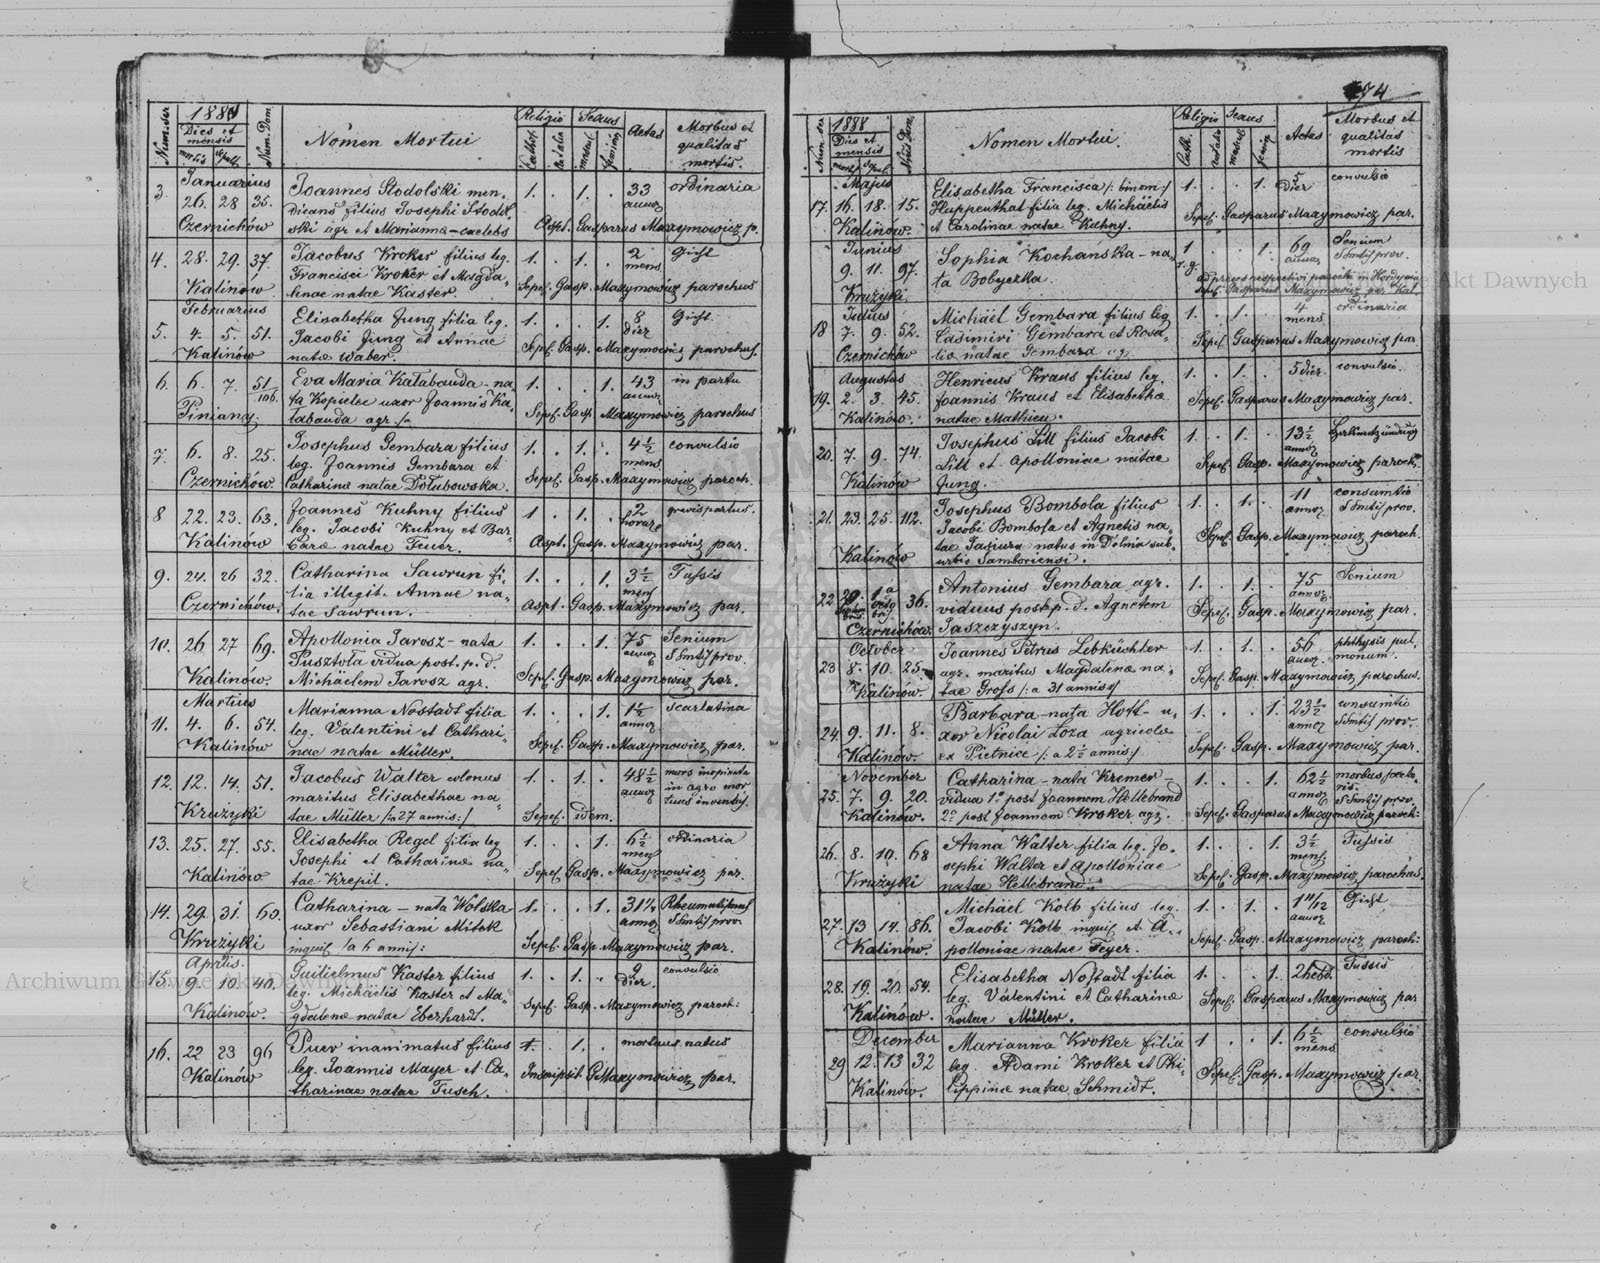 Num. ser
1888
Dies et
mensis
mortis
sepult.
Num. Dom
Nomen Mortui
Religio
Cathol
aut alia
Sexus
mascul
femin
Aetas
Morbus et
qualitas
mortis.
Januarius
3. 26. 28 35. Joannes Stodolski men- 1. . 1. . 33 ordinaria
dicans filius Josephi Stodol- annor
Czernichów ski agr et Marianna - caelebs Aspt. Gasparus Maxymowicz p.
4. 28. 29. 37. Jacobus Kroker filius leg. 1. . 1. . 2 Gicht
Francisci Kroker et Magda- mens.
Kalinów lenae natae Kaster. Sepel. Gasp. Maxymowicz parochus
Februarius
5. 4. 5. 51. Elisabetha Jung filia leg. 1. . . 1. 8 Gicht
Jacobi Jung et Annae dier
Kalinów natae Waber. Sepel. Gasp. Maxymowicz parochus.
6. 6. 7. 51/106. Eva Maria Kałabauda - na- 1. . . 1. 43 in partu
ta Kopulec uxor Joannis Ka- annor
Piniany. łabauda agr. Sepel. Gasp. Maxymowicz parochus
7. 6. 8. 25. Josephus Gembara filius 1. . 1. . 4 1/2 convulsio
leg. Joannis Gembara et mens.
Czernichów Catharinae natae Dołubowska. Sepel. Gasp. Maxymowicz paroch.
8 22. 23. 63. Joannes Kuhny filius 1. . 1. . 2 gravis partus.
leg. Jacobi Kuhny et Bar- horar
Kalinów barae natae Feuer. Aspt. Gasp. Maxymowicz par.
9. 24. 26 32. Catharina Sawrun fi- 1. . . 1. 3 1/2 Tussis
lia illegit. Annae na- mens
Czernichów. tae Sawrun. Aspt. Gasp. Maxymowicz par.
10. 26 27 69. Apollonia Jarosz - nata 1. . . 1. 75 Senium
Pusztoła vidua post. p. d. annor SSmtis prov.
Kalinów. Michaelem Jarosz agr. Sepel. Gasp. Maxymowicz par.
Martius
11. 4. 6. 54. Marianna Nostadt filia 1. . . 1. 1 1/2 scarlatina
leg. Valentini et Cathari- annor
Kalinów nae natae Müller. Sepel. Gasp. Maxymowicz par.
12. 12. 14. 51. Jacobus Walter colonus 1. . 1. . 48 1/2 mors inopinata
maritus Elisabethae na- annor in agro mor
Krużyki tae Müller /: a 27 annis :/ Sepel. idem. tuus inventus.
13. 25. 27. 55. Elisabetha Regel filia leg 1. . . 1. 6 1/2 ordinaria
Josephi et Catharinae na- mens
Kalinów tae Krepil. Sepel. Gasp. Maxymowicz par.
14. 29. 31. 60. Catharina - nata Wolska 1. . . 1. 31 Rheumatismus
uxor Sebastiani Mitek annor SSmtis prov.
Krużyki inquil /: a 6 annis : Sepel. Gasp. Maxymowicz par.
Aprilis.
15. 9. 10. 40. Guilielmus Kaster filius 1. . 1. . 2 convulsio
leg. Michaelis Kaster et Ma- dier.
Kalinów. gdalenae natae Eberhardt. Sepel. Gasp. Maxymowicz paroch:
16. 22 23 96 Puer inanimatus filius 1. . 1. . mortuus natus
leg. Joannis Mayer et Ca-
Kalinów tharinae natae Tusch. Inscripsit G Maxymowicz, par.
174
Num. ser
1888
Dies et
mensis
mort.
sep.
Num Dom.
Nomen Mortui
Religio
Cath.
aut alia
Sexus
mascul
femin
Aetas
Morbus et
qualitas
mortis
Majus
17. 16. 18. 15. Elisabetha Francisca /: binom :/ 1. . . 1. 5 dier convulsio
Huppenthal filia leg. Michäelis
Kalinów. et Carolinae natae Kuhny. Sepel. Gasparus Maxymowicz par.
Junius
9. 11. 97. Sophia Kochańska - na- 1 . . 1. 69 Senium
ta Bobyczka. r. g. annor SSmtis prov.
Krużyki ad preces respectivi parochi in
Sepel. Gasparus Maxymowicz par. Kal.
Julius
18 7. 9. 52. Michäel Gembara filius leg 1. . 1. . 4 ordinaria
Casimiri Gembara et Rosa- mens
Czernichów lia natae Gembara agr. Sepel. Gasparus Maxymowicz par.
Augustus
19. 2. 3. 45. Henricus Kraus filius leg. 1. . 1. . 5 dier. convulsio.
Joannis Kraus et Elisabethae
Kalinów. natae Mathieu. Sepel. Gasparus Maxymowicz par.
20. 7. 9. 74. Josephus Lill filius Jacobi 1. . 1. . 13 1/2
Lill et Apolloniae natae annor
Kalinów Jung. Sepel. Gasp. Maxymowicz paroch.
21. 23. 25. 112. Josephus Bombola filius 1. . 1. . 11 consumtio
Jacobi Bombola et Agnetis na- annor SSmtis prov.
tae Jasiura natus in Dolnia sub-
Kalinów urbio Samboriensi. Sepel. Gasp. Maxymowicz paroch.
22 29. 1a 36. Antonius Gembara agr. 1. . 1. . 75 Senium
Septembris Octobris viduus post p. d. Agnetem annor.
Czernichów. Jaszczyszyn. Sepel. Gasp. Maxymowicz par.
October
23 8. 10. 25. Joannes Petrus Lebküchler 1. . 1. . 56 phthysis pul
agr. maritus Magdalenae na- annor. monum.
Kalinów. tae Gross /: a 31 annis :/ Sepel. Gasp. Maxymowicz parochus.
24. 9. 11. 8. Barbara - nata Hoff - u- 1. . . 1. 23 1/2 consumtio
xor Nicolai Łoza agricolae annor SSmtis prov.
Kalinów. ex Pietnice /: a 2 1/2 annis :/ Sepel. Gasp. Maxymowicz par.
November
25. 7. 9. 20. Catharina - nata Kremer - 1. . . 1. 62 1/2 morbus pecto-
vidua 1o post Joannem Hellebrand annor ris.
SSmtis prov.
Kalinów. 2o post Joannem Kroker agr. Sepel. Gasparus Maxymowicz paroch:
26. 8. 10. 68 Anna Walter filia leg. Jo- 1. . . 1. 3 1/2 Tussis
sephi Walter et Apolloniae mens.
Krużyki natae Hellebrand. Sepel. Gasp. Maxymowicz parochus.
27. 13 14. 86. Michäel Kolb filius leg. 1. . 1. . 1 11/12 Gicht
Jacobi Kolb inquil et A- annor
Kalinów. polloniae natae Feyer. Sepel. Gasp. Maxymowicz paroch:
28. 19. 20. 54. Elisabetha Nostadt filia 1. . . 1. 2 hebd. Tussis
leg. Valentini et Catharinae
Kalinów. natae Müller. Sepel. Gasparus Maxymowicz par
December
29 12. 13 32 Marianna Kroker filia 1 . . 1. 6 1/2 convulsio
leg. Adami Kroker et Phi- mens
Kalinów. lippinae natae Schmidt. Sepel. Gasp. Maxymowicz par.
Archiwum Główne Akt Dawnych
Akt Dawnych